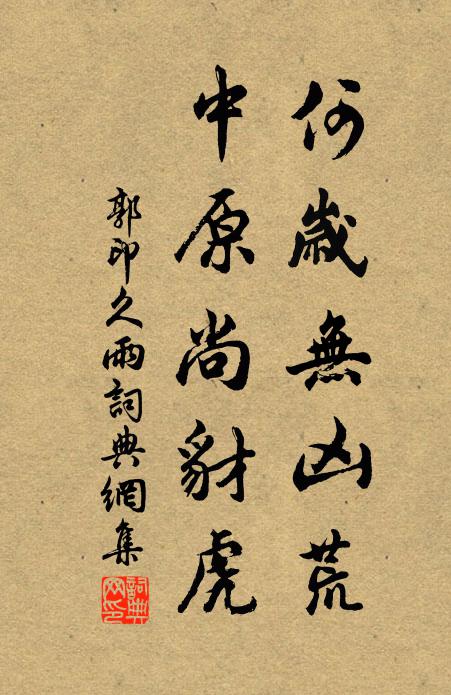 何歲無凶荒
中原尚豺虎
郭印久雨詞典網集
詞典網印